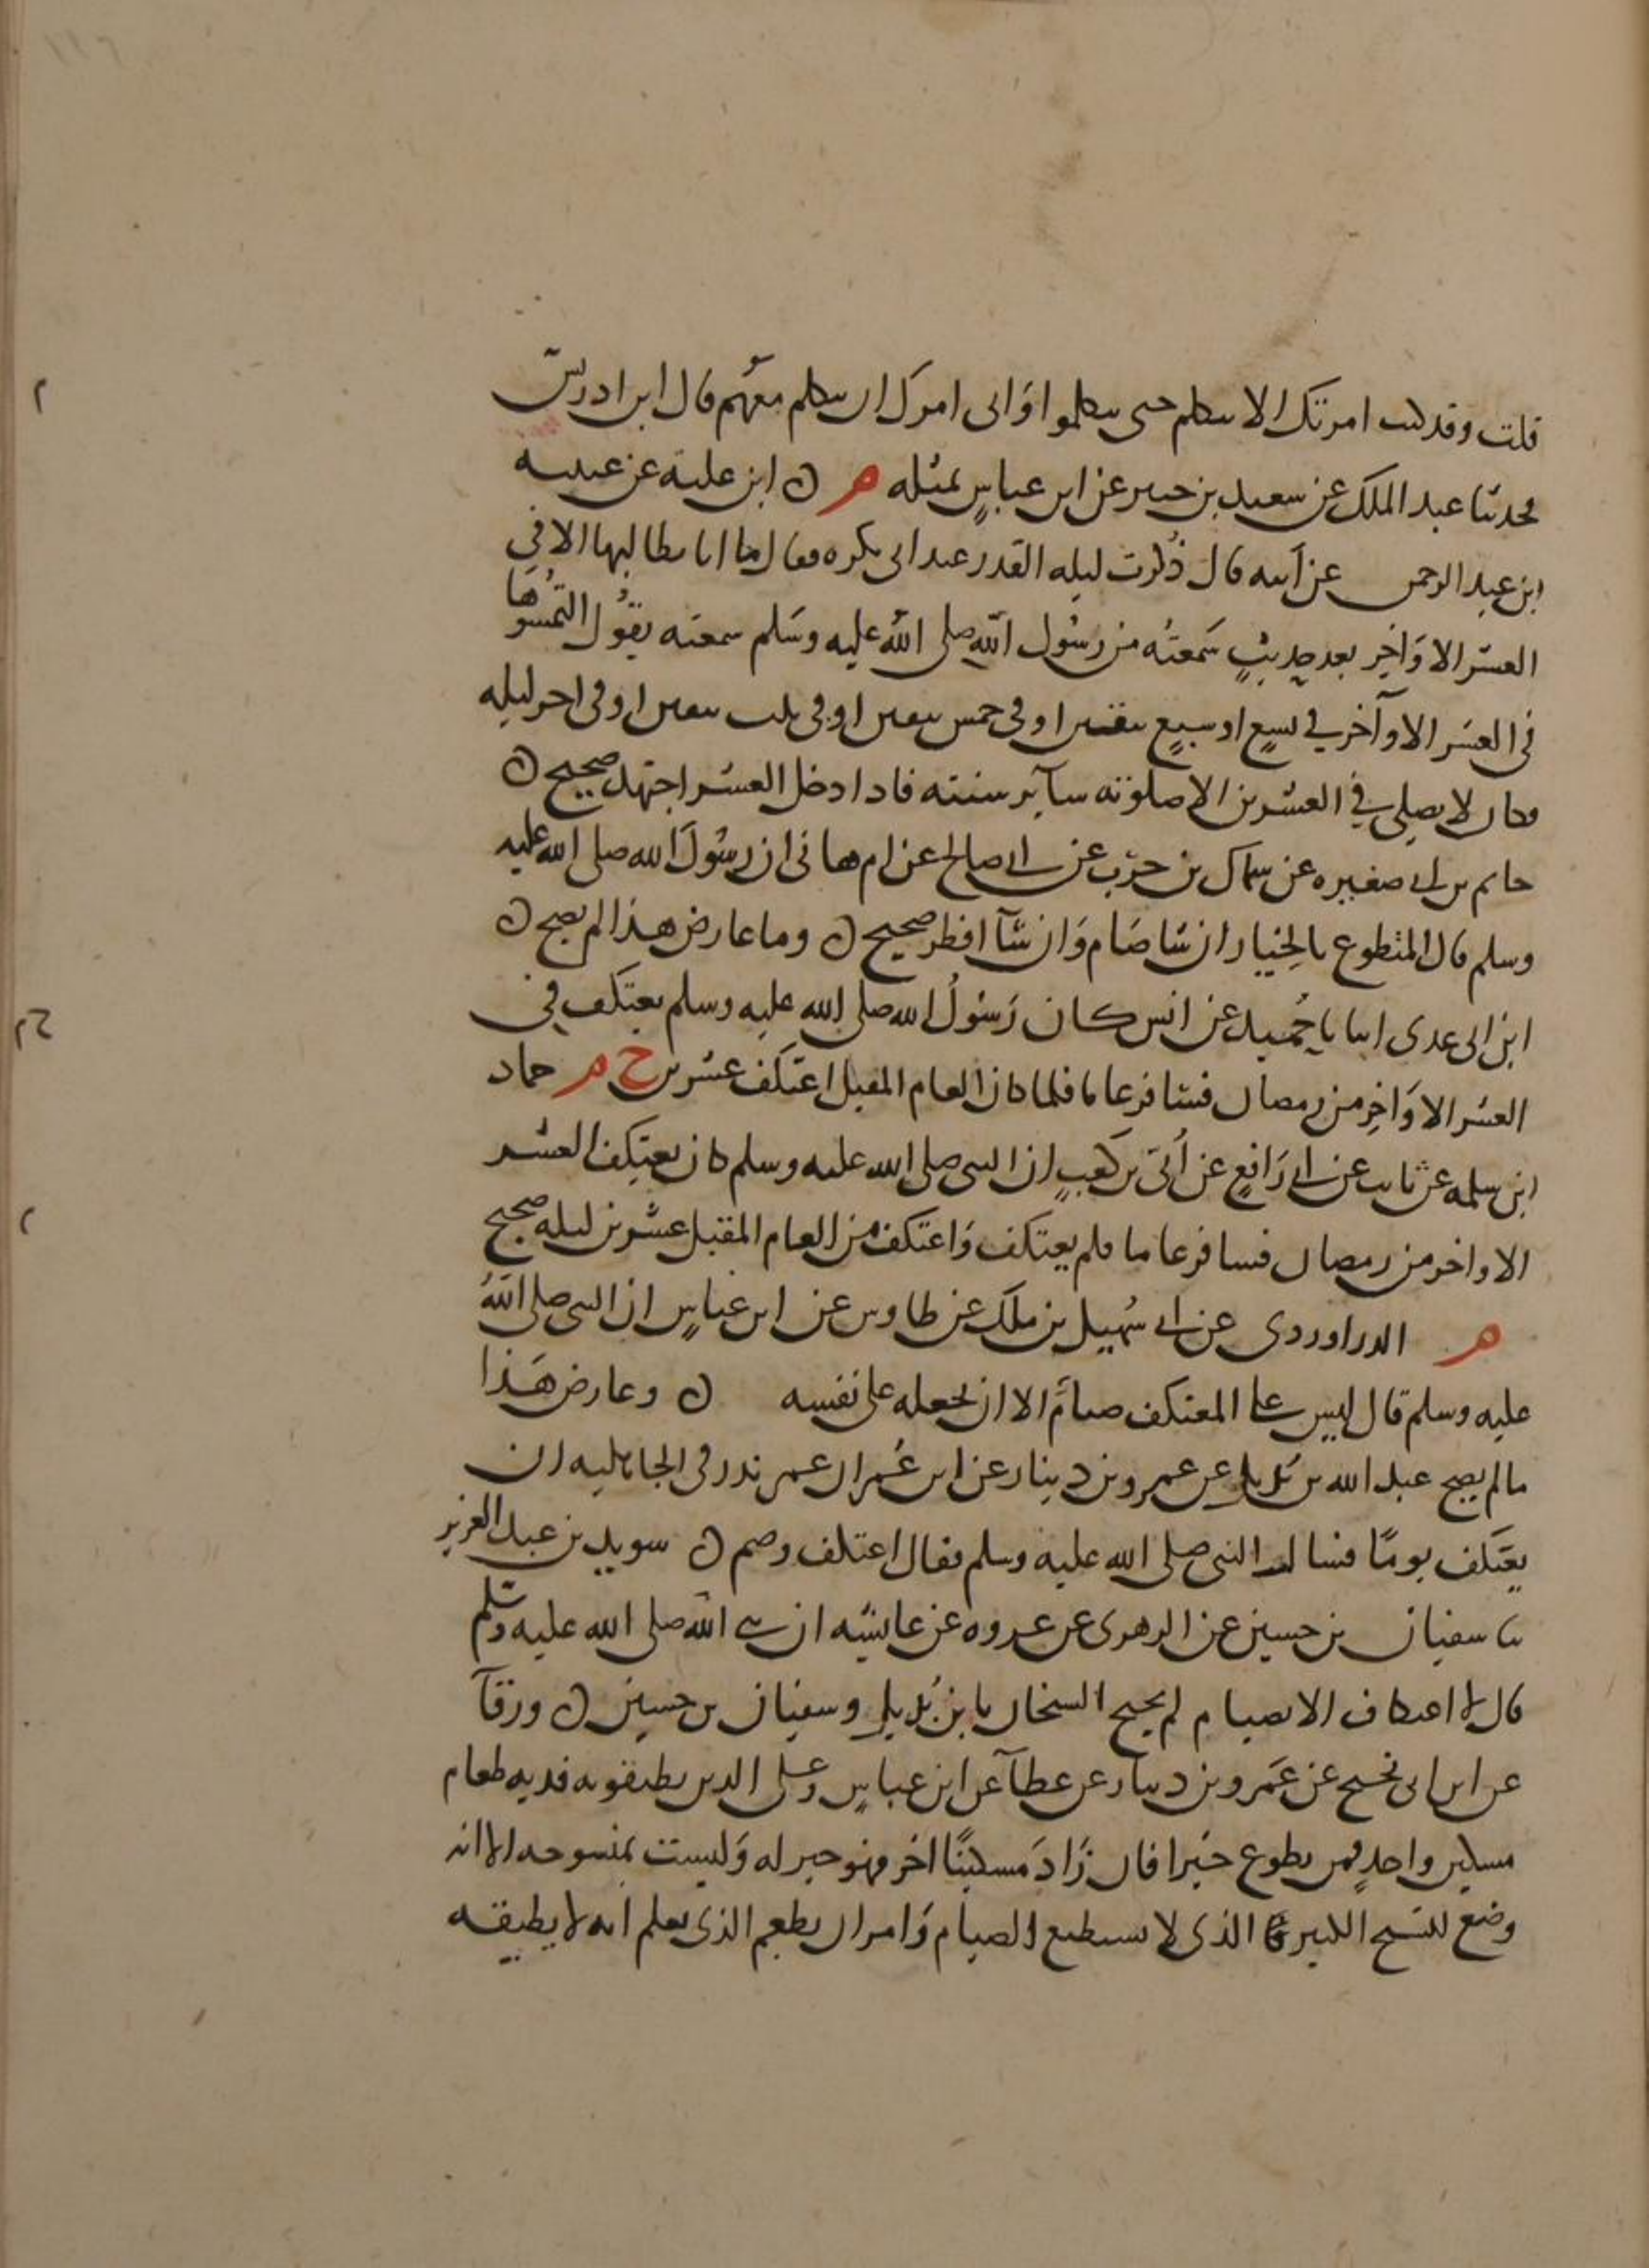 قلت وقد كنت امرتك الا تتكلم حتى يتكلموا وانى امرك ان تتكلم معهم قال ابن ادريس
محدثنا عبد الملك عن سعيد بن جبير عن ابن عباس بمثله م ن ابن علية عن عيينه
ابن عبد الرحمن عن ابيه قال ذكرت ليله القدر عند ابى بكره فقال ما انا بطالبها الا في
العشر الاواخر بعد حديث سمعته من رسول الله صلى الله عليه وسلم سمعته يقول التمسوها
في العشر الاواخر في تسع او سبع بقين او في خمس بقين او في ثلث بقين او في اخر ليله
وكان لا يصلي في العشرين الا صلوته ساير سنته فاذا دخل العشر اجتهد صحيح ن
حاتم بن ابي صغيره عن سماك بن حرب عن ابي صالح عن ام هانى ان رسول الله صلى الله عليه
وسلم قال المتطوع بالخيار ان شا صام وان شآ افطر صحيح ن وما عارض هذا لم يصح ن
ابن ابى عدى انبانا حميد عن انس كان رسول الله صلى الله عليه وسلم يعتكف في
العشر الاواخر من رمضان فسافر عاما فلما كان العام المقبل اعتكف عشرين خ م حماد
ابن سلمه عن ثابت عن ابي رافع عن ابي بن كعب ان النبي صلى الله عليه وسلم كان يعتكف العشر
الاواخر من رمضان فسافر عاما فلم يعتكف واعتكف من العام المقبل عشرين ليله صحيح
م الدراوردى عن ابي سهيل بن ملك عن طاوس عن ابن عباس ان النبي صلى الله
عليه وسلم قال ليس على المعتكف صيام الا ان يجعله على نفسه ن وعارض هذا
مالم يصح عبد الله بن بديل عن عمرو بن دينار عن ابن عمر ان عمر نذر في الجاهليه ان
يعتكف يوما فسال النبي صلى الله عليه وسلم فقال اعتكف وصم ن سويد بن عبد العزيز
ثنا سفيان بن حسين عن الزهرى عن عروه عن عايشه ان نبي الله صلى الله عليه وسلم
قال لا اعتكاف الا بصيام لم يحتج الشيخان بابن بديل وسفيان بن حسين ن ورقآ
عن ابن ابى نجيح عن عمرو بن دينار عن عطآ عن ابن عباس وعلى الذين يطيقونه فديه طعام
مسكين واحد فمن تطوع خيرا فان زاد مسكينا اخر فهو خير له وليست بمنسوخه الا انه
وضع للشيخ الكبير الذى لا يستطيع الصيام وامر ان يطعم الذى يعلم انه لا يطيقه